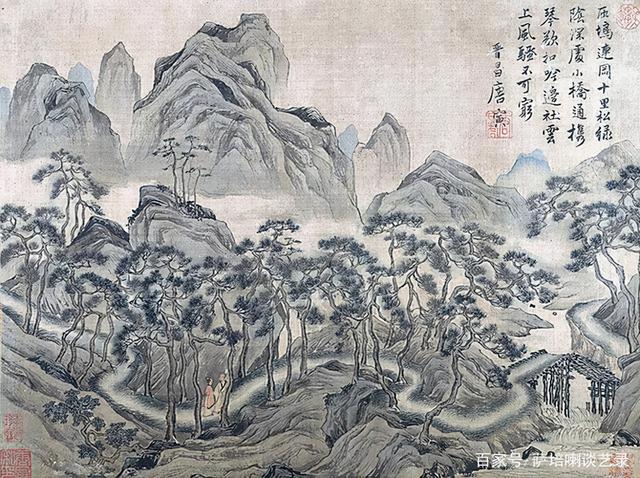 塢連岡十里松綠
陰深處小橋通携
琴欲扣邊社雲
上風騷不可窮
晉昌唐寅
百家号/萨培喇谈艺录